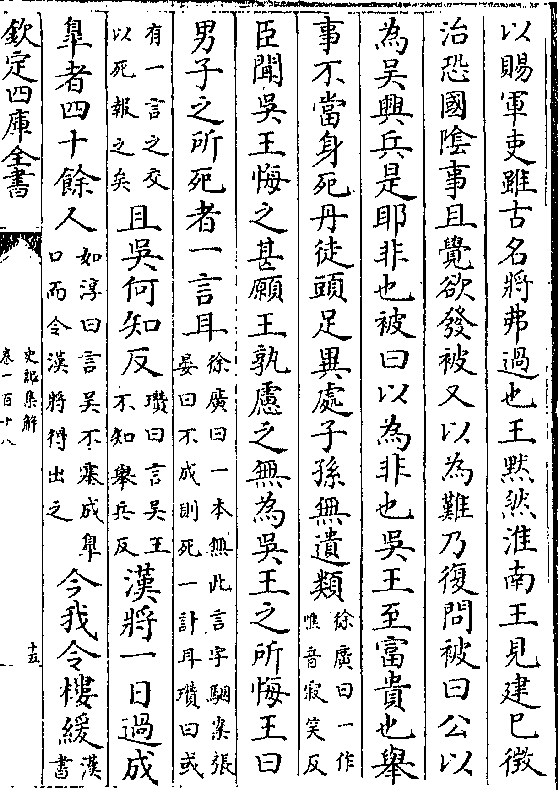 以賜軍吏雖古名將弗過也王黙然淮南王見建已徵
治恐國隂事且覺欲發被又以為難乃復問被曰公以
為吳興兵是耶非也被曰以為非也吳王至富貴也舉
事不當身死丹徒頭足異處子孫無遺類徐廣曰一作噍音寂笑反
臣聞吳王悔之甚願王孰慮之無為吳王之所悔王曰
男子之所死者一言耳徐廣曰一本無此言字駰案張晏曰不成則死一計耳瓚曰或
有一言之交以死報之矣且吳何知反瓚曰言吳王不知舉兵反漢將一日過成
臯者四十餘人如淳曰言吳不塞成臯口而令漢將得出之今我令樓緩漢書
欽定四庫全書
史記集解
卷一百十八
十五